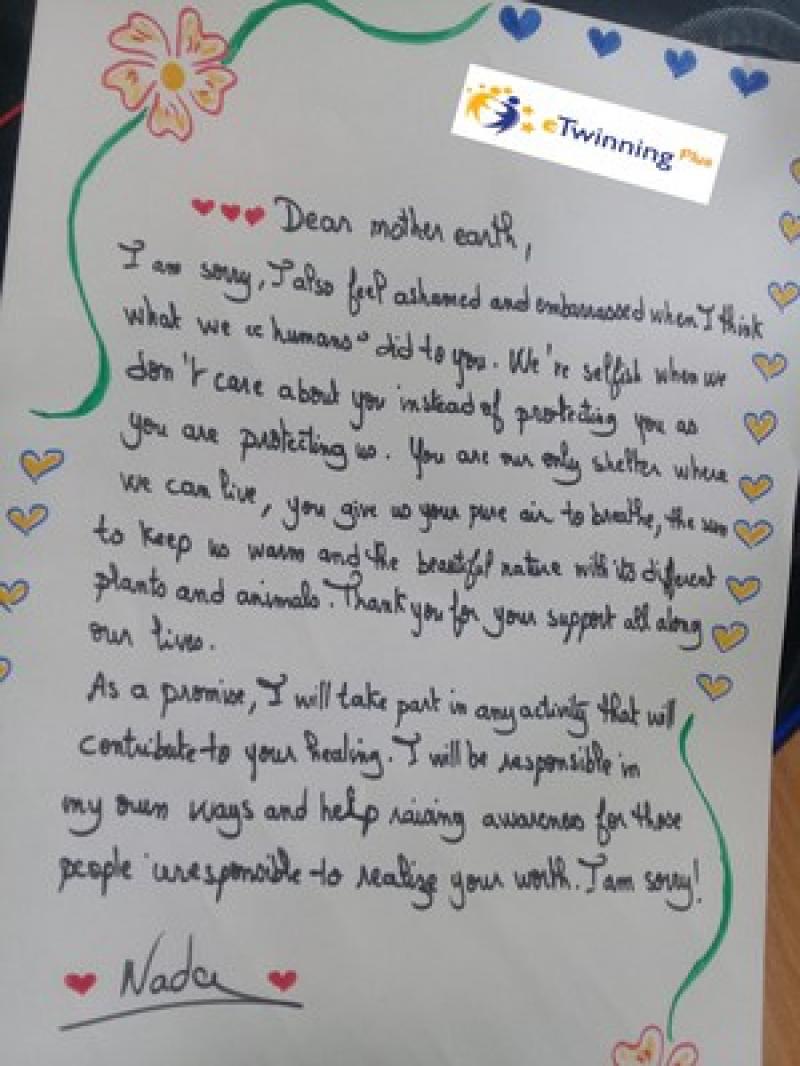 eTwinning Plus
Dear mother earth,
I am sorry, I also feel ashamed and embarrassed when I think
what we "humans" did to you. We're selfish when we
don't care about you instead of protecting you as
you are protecting us. You are our only shelter where
we can live, you give us your pure air to breathe, the sun
to keep us warm and the beautiful nature with its different
plants and animals. Thank you for your support all along
our lives.
As a promise, I will take part in any activity that will
contribute to your healing. I will be responsible in
my own ways and help raising awareness for those
people irresponsible to realize your worth. I am sorry!
Nada